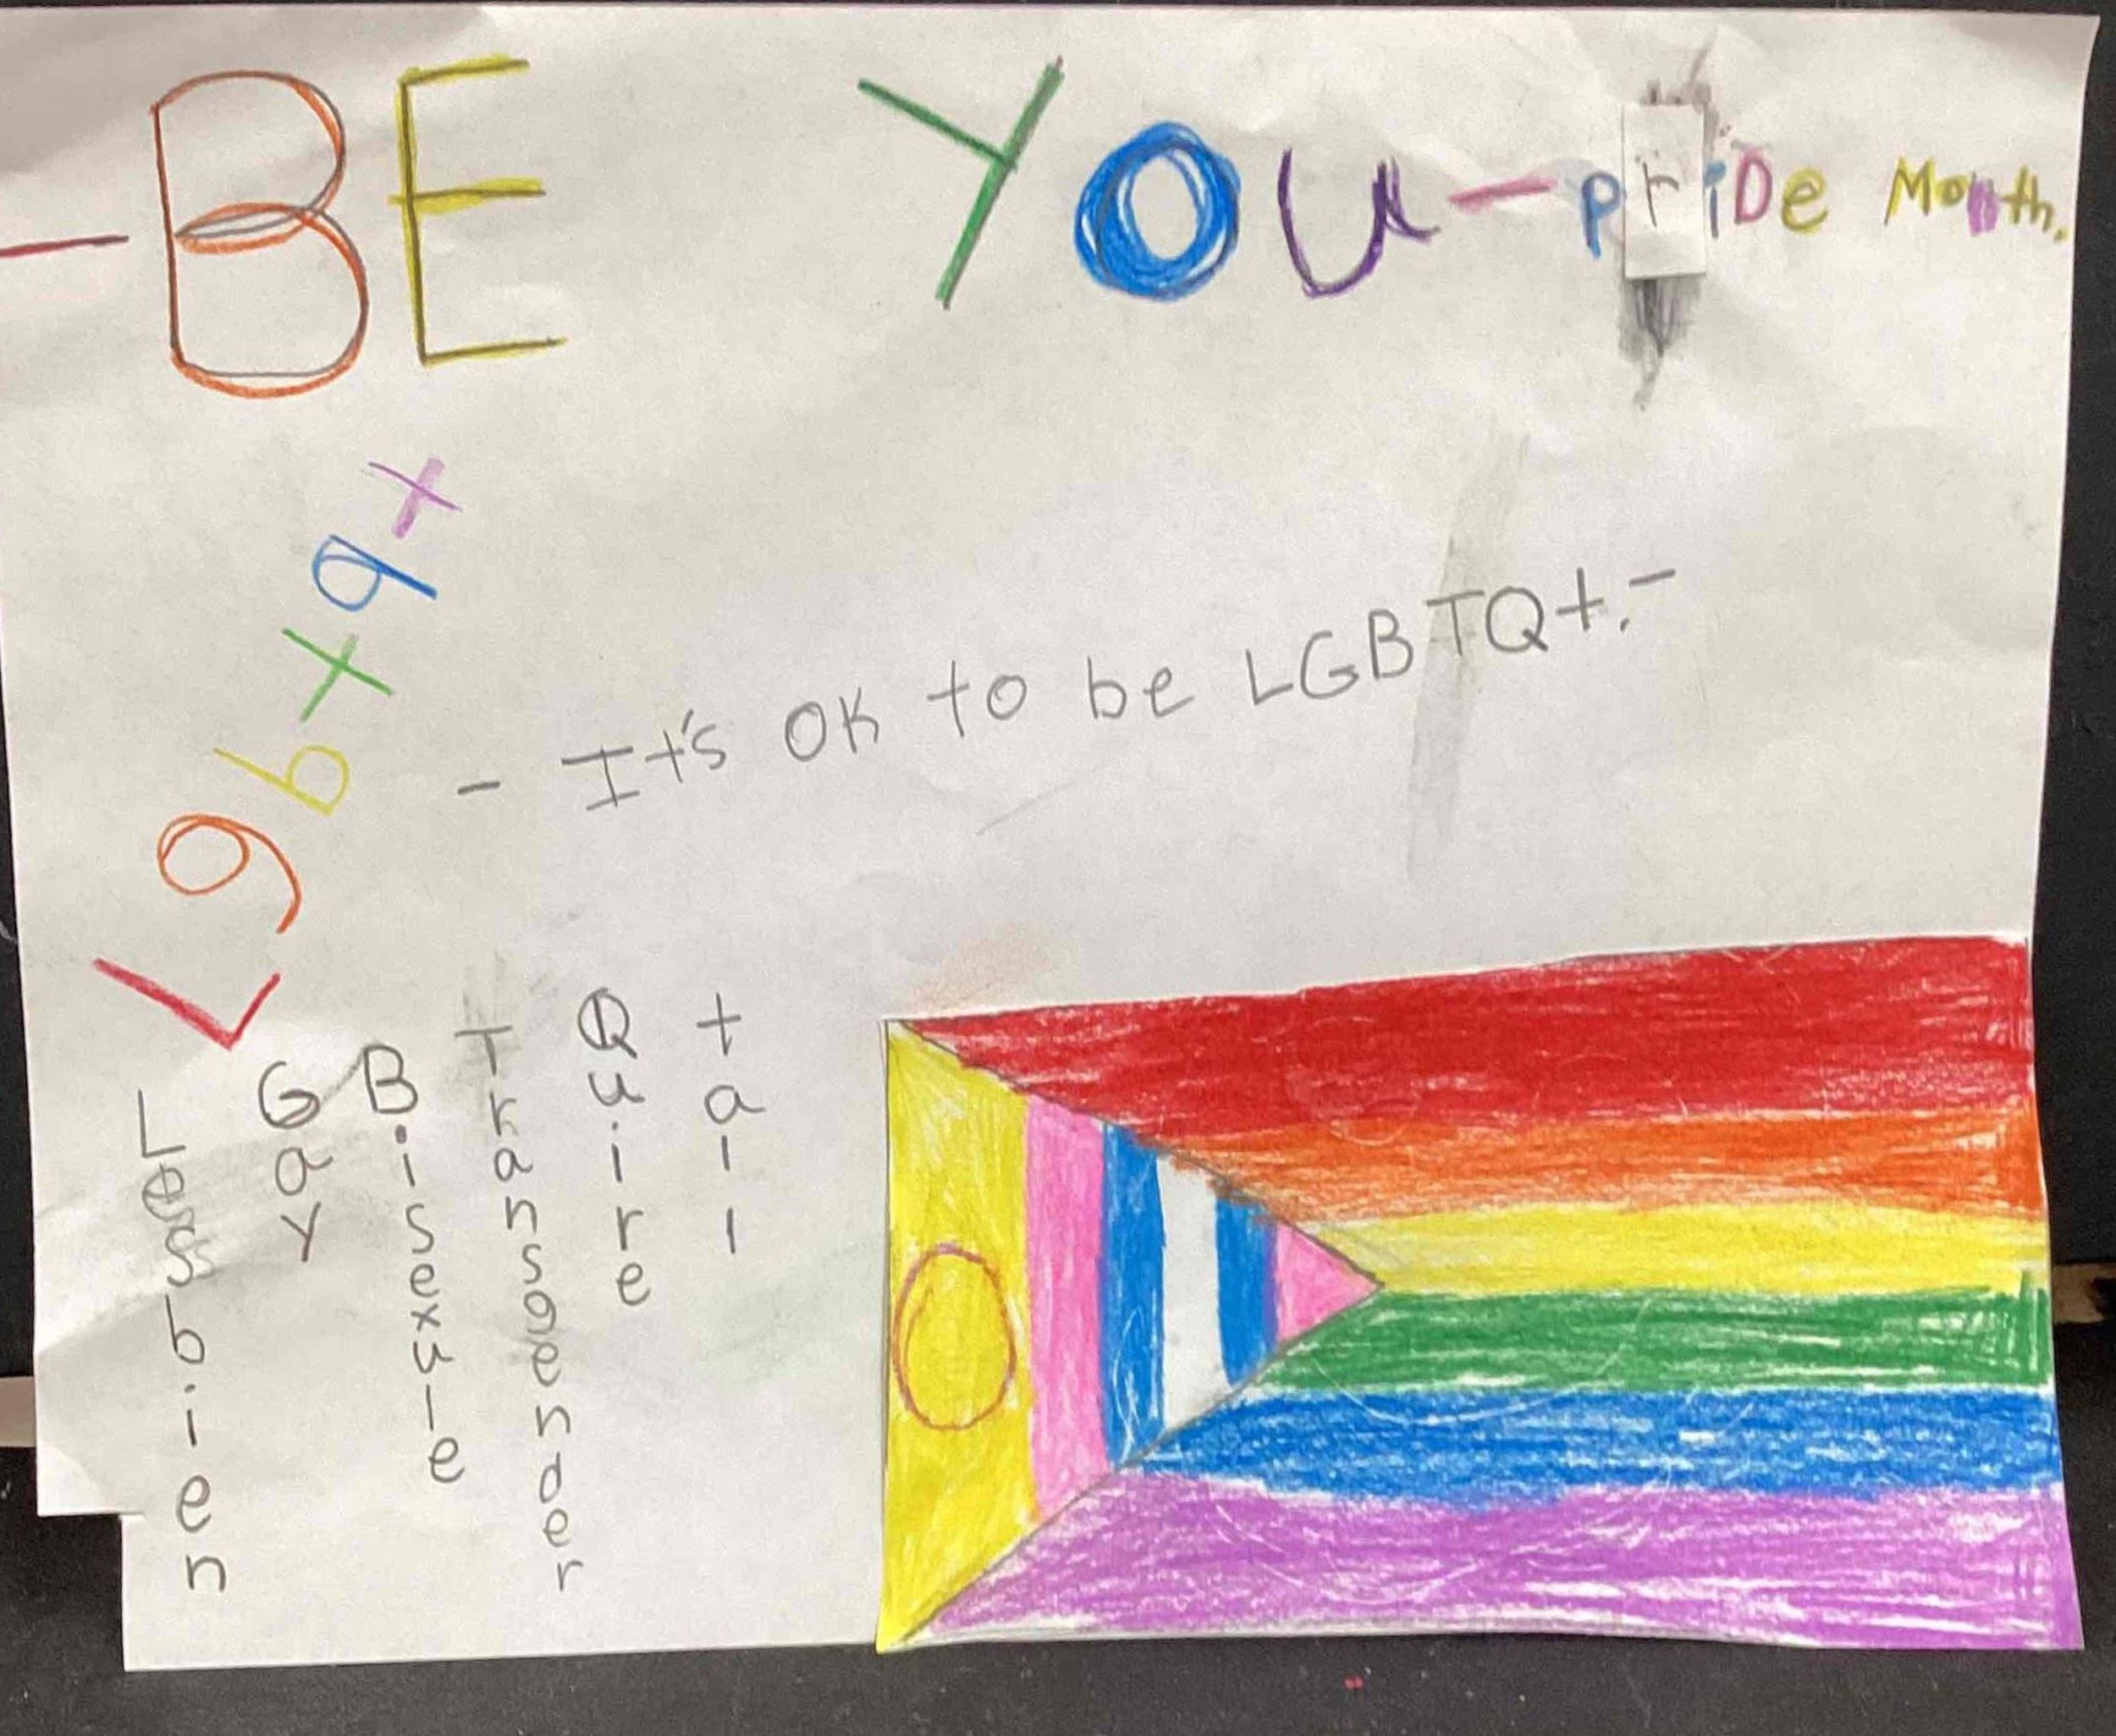 -BE YOU-PriDe Month.
Lgbtq+
- It's OK to be LGBTQ+.-
Lesbien
Gay
Bisexule
Transgender
Quire
+all